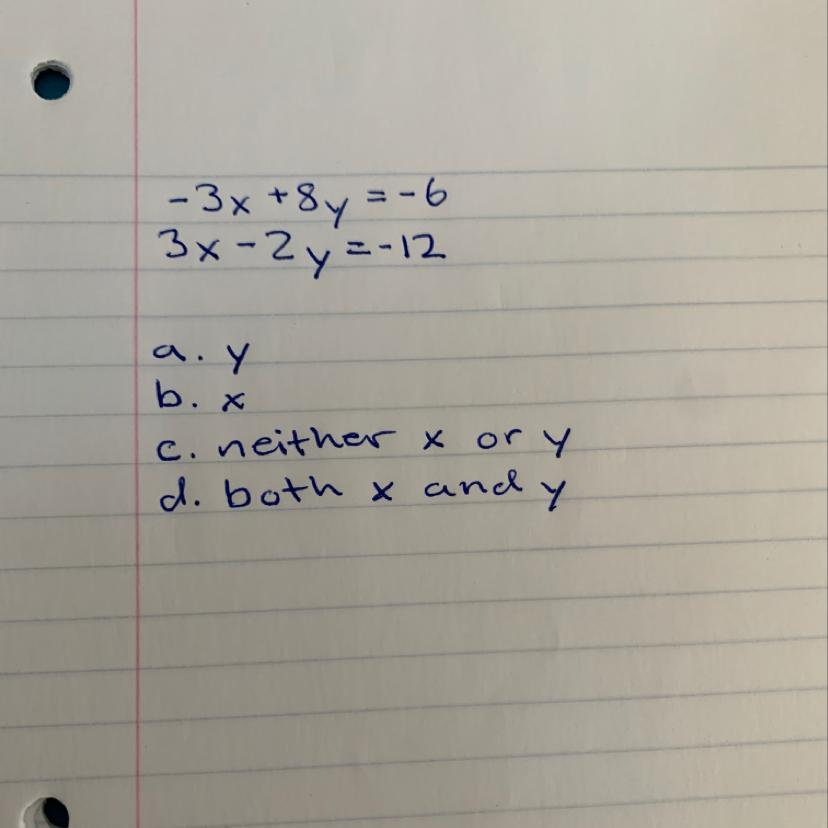 -3x +8y = -6
3x - 2y = -12
a. y
b. x
c. neither x or y
d. both x and y